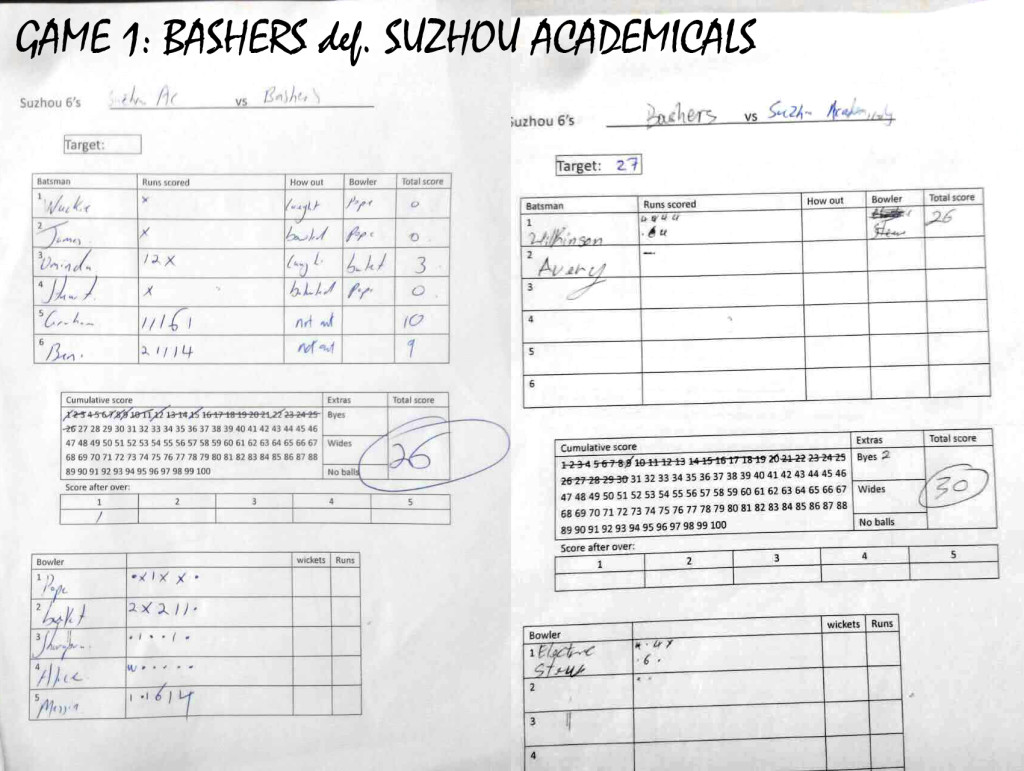 GAME 1: BASHERS def. SUZHOU ACADEMICALS
Suzhou 6's Suzhou Ac vs Bashers
Target:
Batsman Runs scored How out Bowler Total score
1 x caught Pope 0
2 James x bowled Pope 0
3 12x 3
4 x Pope 0
5 Graham 11161 not out 10
6 Ben. 21114 not out 9
Cumulative score Extras Total score
1 2 3 4 5 6 7 8 9 10 11 12 13 14 15 16 17 18 19 20 21 22 23 24 25 Byes
26 27 28 29 30 31 32 33 34 35 36 37 38 39 40 41 42 43 44 45 46
47 48 49 50 51 52 53 54 55 56 57 58 59 60 61 62 63 64 65 66 67 Wides 26
68 69 70 71 72 73 74 75 76 77 78 79 80 81 82 83 84 85 86 87 88
89 90 91 92 93 94 95 96 97 98 99 100 No balls
Score after over:
1 2 3 4 5
1
Bowler wickets Runs
1 Pope • x 1 x x •
2 2 x 2 1 1 •
3 • 1 • • 1 •
4 Alice w • • • • •
5 1 • 1 6 1 4
Suzhou 6's Bashers vs Suzhou
Target: 27
Batsman Runs scored How out Bowler Total score
1 Wilkinson Steve 26
2 Avery
3
4
5
6
Cumulative score Extras Total score
1 2 3 4 5 6 7 8 9 10 11 12 13 14 15 16 17 18 19 20 21 22 23 24 25 Byes 2
26 27 28 29 30 31 32 33 34 35 36 37 38 39 40 41 42 43 44 45 46
47 48 49 50 51 52 53 54 55 56 57 58 59 60 61 62 63 64 65 66 67 Wides 30
68 69 70 71 72 73 74 75 76 77 78 79 80 81 82 83 84 85 86 87 88
89 90 91 92 93 94 95 96 97 98 99 100 No balls
Score after over:
1 2 3 4 5
Bowler wickets Runs
1 Electric
Steve • 6 •
2 • •
3
4